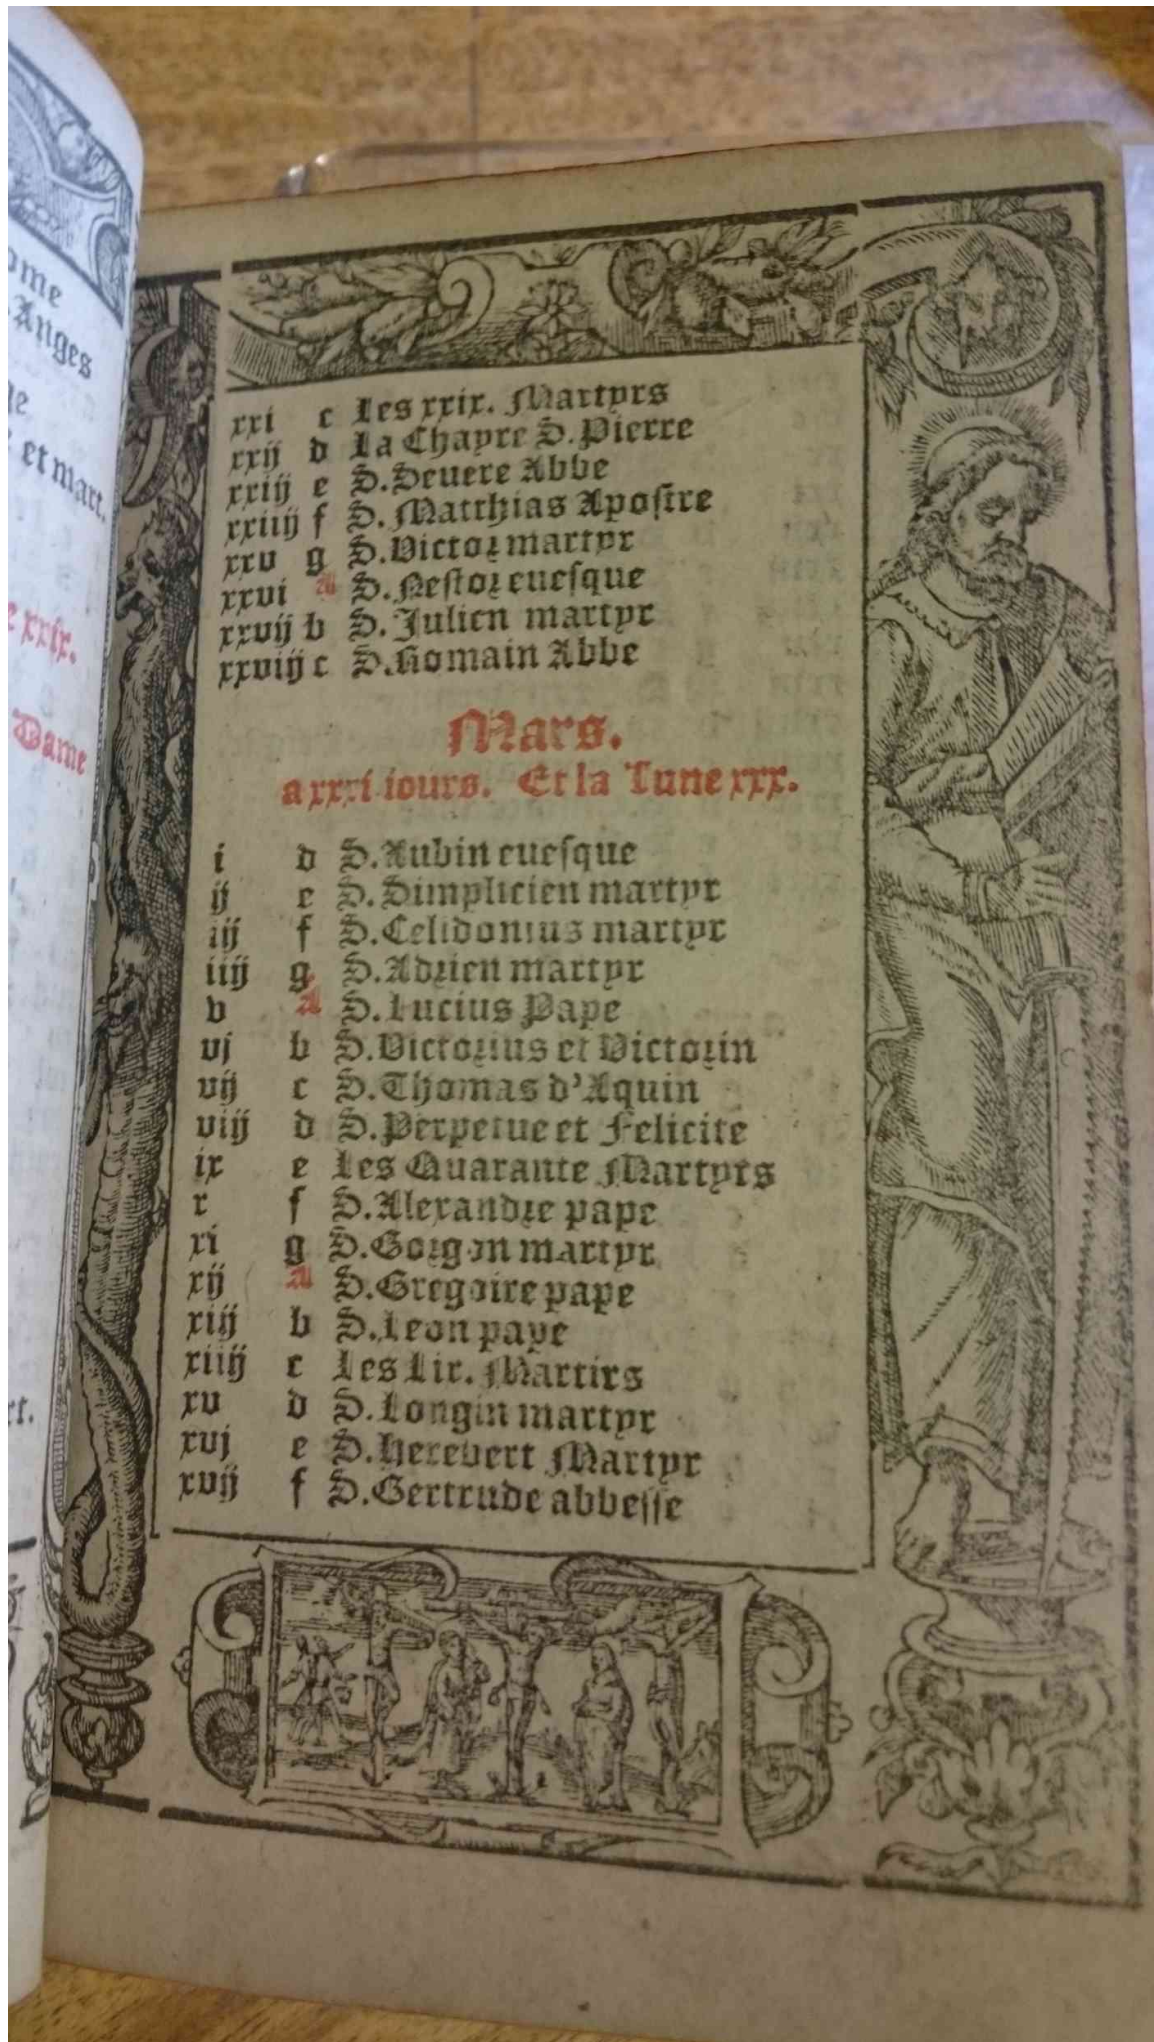 ome
Anges
et mart.
e xxix.
Dame
xxi c Les xxix. Martyrs
xxij d La Chayre S. Pierre
xxiij e S. Seuere Abbe
xxiiij f S. Matthias Apostre
xxv g S. Victor martyr
xxvi A S. Nestor euesque
xxvij b S. Julien martyr
xxviij c S. Romain Abbe
Mars.
a xxxi iours. Et la Lune xxx.
i d S. Aubin euesque
ij e S. Simplicien martyr
iij f S. Celidonius martyr
iiij g S. Adrien martyr
v A S. Lucius Pape
vj b S. Victorius et Victorin
vij c S. Thomas d'Aquin
viij d S. Perpetue et Felicite
ix e Les Quarante Martyrs
x f S. Alexandre pape
xi g S. Gorgon martyr
xij A S. Gregoire pape
xiij b S. Leon pape
xiiij c Les Lix. Martirs
xv d S. Longin martyr
xvj e S. Herebert Martyr
xvij f S. Gertrude abbesse